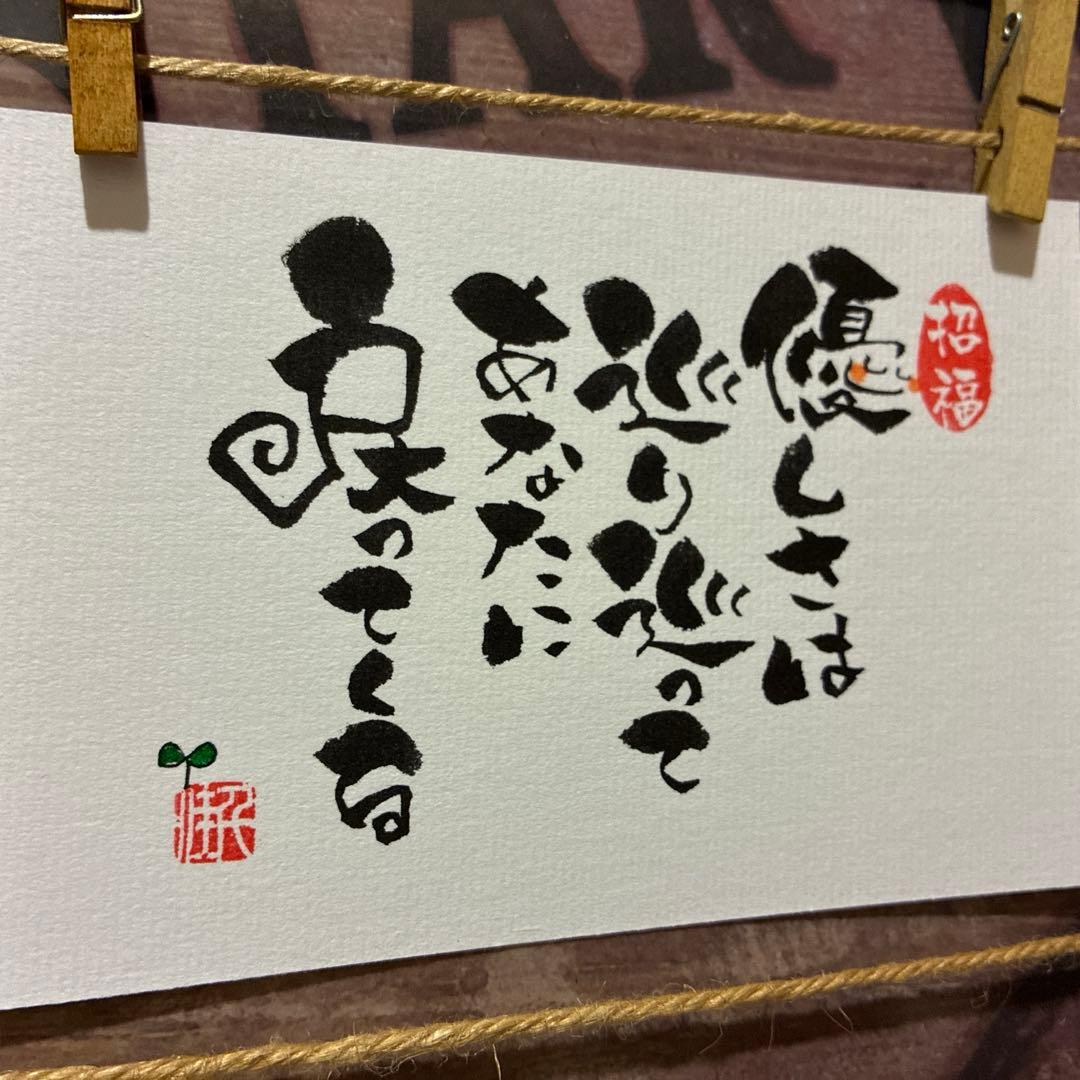 招福
優しさは
巡り巡って
あなたに
戻ってくる